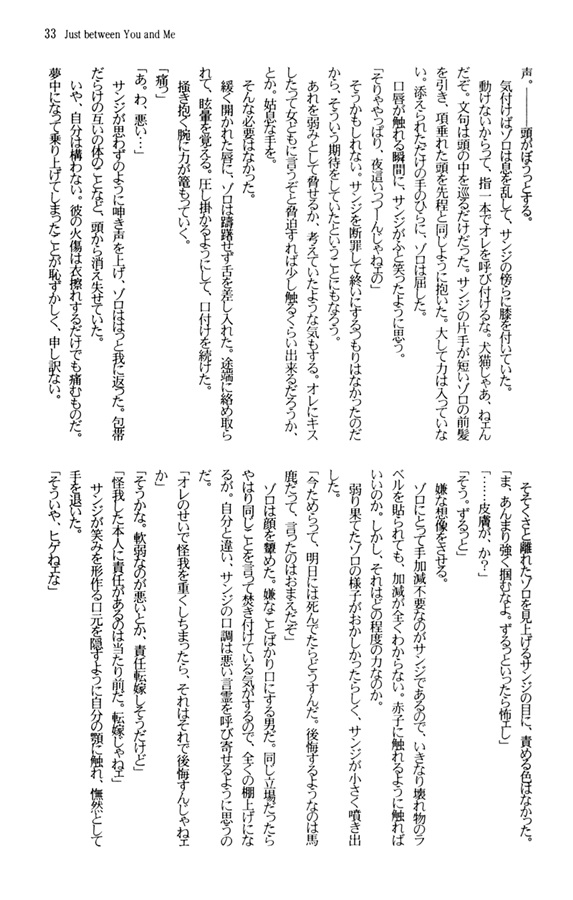 33 Just between You and Me
声。――――頭がぼうっとする。
気付けばゾロは息を乱して、サンジの傍らに膝を付いていた。
動けないからって、指一本でオレを呼び付けるな。犬猫じゃあ、ねェん
だぞ。文句は頭の中を巡るだけだった。サンジの片手が短いゾロの前髪
を引き、項垂れた頭を先程と同じように抱いた。大して力は入っていな
い。添えられただけの手のひらに、ゾロは屈した。
口唇が触れる瞬間に、サンジがふと笑ったように思う。
「そりゃやっぱり、夜這いつーんじゃねェの」
そうかもしれない。サンジを断罪して終いにするつもりはなかったのだ
から、そういう期待をしていたということにもなろう。
あれを弱みとして脅せるか、考えていたような気もする。オレにキス
したって女どもに言うぞと脅迫すれば少し触るくらい出来るだろうか、
とか。姑息な手を。
そんな必要はなかった。
緩く開かれた唇に、ゾロは躊躇せず舌を差し入れた。途端に絡め取ら
れて、眩暈を覚える。圧し掛かるようにして、口付けを続けた。
掻き抱く腕に力が篭もっていく。
「痛っ」
「あ。わ、悪い…」
サンジが思わずのように呻き声を上げ、ゾロははっと我に返った。包帯
だらけの互いの体のことなど、頭から消え失せていた。
いや、自分は構わない。彼の火傷は衣擦れするだけでも痛むものだ。
夢中になって乗り上げてしまったことが恥ずかしく、申し訳ない。
そそくさと離れたゾロを見上げるサンジの目に、責める色はなかった。
「ま、あんまり強く掴むなよ。ずるっといったら怖エし」
「……皮膚が、か?」
「そう。ずるっと」
嫌な想像をさせる。
ゾロにとって手加減不要なのがサンジであるので、いきなり壊れ物のラ
ベルを貼られても、加減が全くわからない。赤子に触れるように触れば
いいのか。しかし、それはどの程度の力なのか。
弱り果てたゾロの様子がおかしかったらしく、サンジが小さく噴き出
した。
「今ためらって、明日には死んでたらどうすんだ。後悔するようなのは馬
鹿だって、言ったのはおまえだぞ」
ゾロは顔を顰めた。嫌なことばかり口にする男だ。同じ立場だったら
やはり同じことを言って焚き付けている気がするので、全くの棚上げにな
るが。自分と違い、サンジの口調は悪い言霊を呼び寄せるように思うの
だ。
「オレのせいで怪我を重くしちまったら、それはそれで後悔すんじゃねェ
か」
「そうかな。軟弱なのが悪いとか、責任転嫁しそうだけど」
「怪我した本人に責任があるのは当たり前だ。転嫁じゃねェ」
サンジが笑みを形作る口元を隠すように自分の顎に触れ、憮然として
手を退いた。
「そういや、ヒゲねェな」